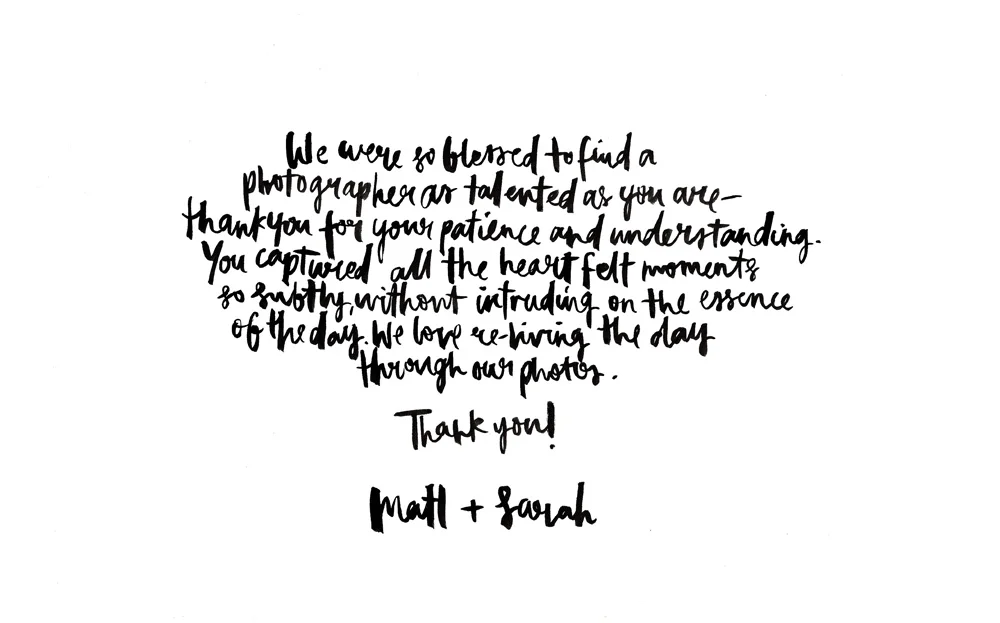 We were so blessed to find a
photographer as talented as you are—
thankyou for your patience and understanding.
You captured all the heart felt moments
so subtly, without intruding on the essence
of the day. We love re-living the day
through our photos.
Thank you!
Matt + Sarah